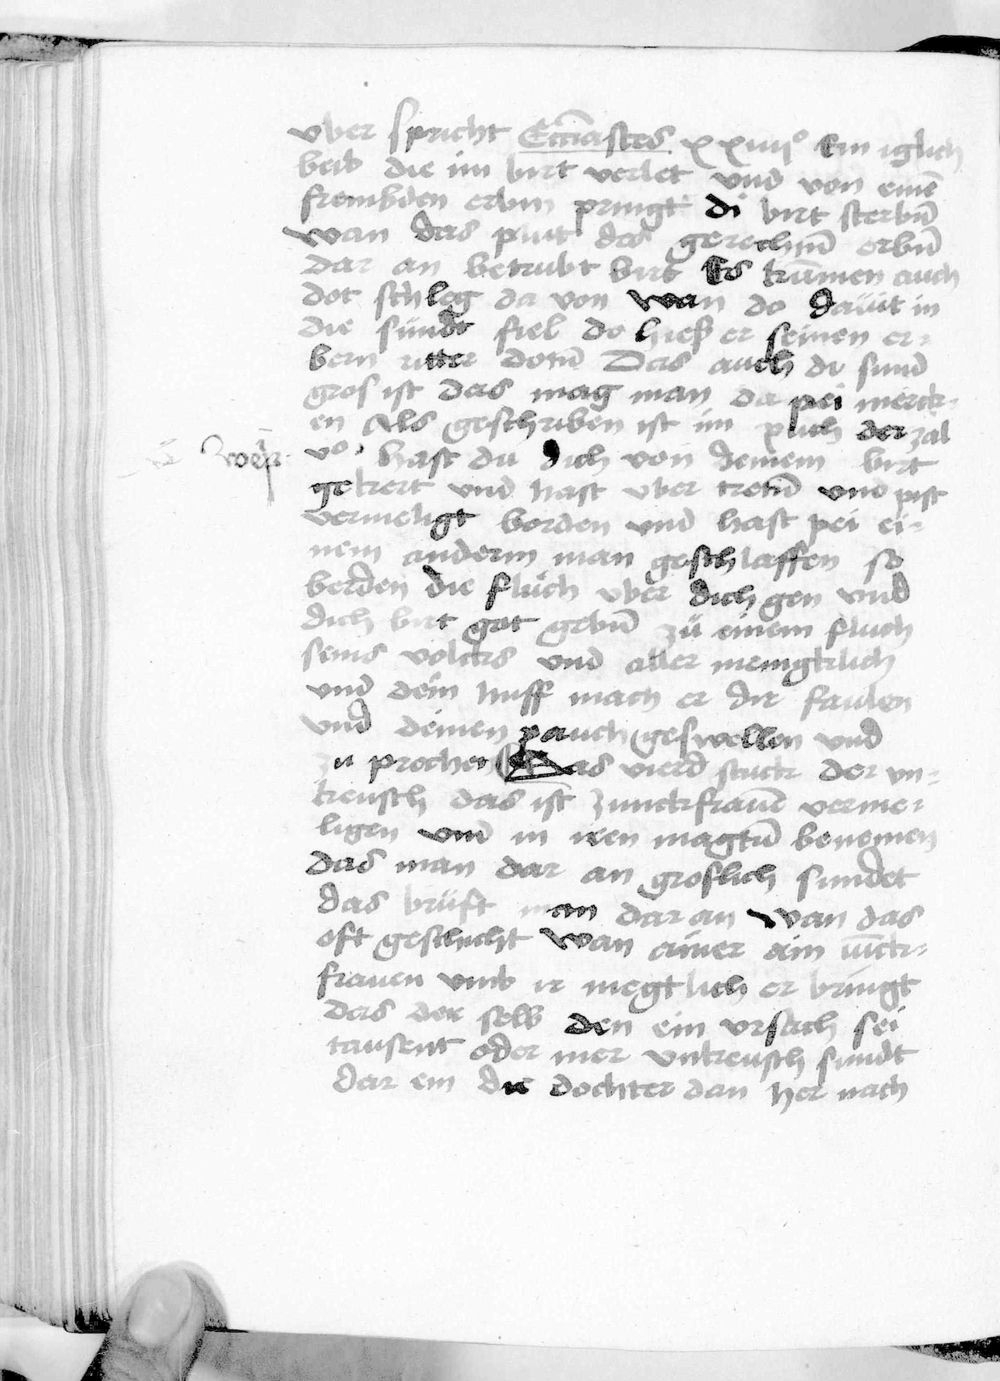 vber spricht Ecciastes xxiiij° Ein iglich
beib die im birt verlet vnd von einē
frembden erbin pringt di birt sterbn̄
wan das pluit das gerechnn̄ erbn̄
dar an betrubt birt Es kūmen auch
dot schleg da von wan do dauit in
die sündt fiel do hieß er seinen er-
bern ritter dotn̄ Das auch di sund
gros ist das mag man da pei merck-
en Als geschriben ist im puch der zal
v° hast du dich von deinem birt
gekert vnd hast vber tretn̄ vnd pist
vermeligt borden vnd hast pei ei-
nem anderm man geschlaffen so
berden die fluch vber dich gen vnd
dich birt got gebn̄ zü einem fluch
seins volcks vnd aller menigklich
vnd dein huff mach er dir faulen
vnd deinen pauch geswellen vnd
zu prochen Das vierd stuck der vn-
keusch das ist Junckfrauē verme-
ligen vnd in iren magtū benemen
das man dar an groslich sundet
das brüft man dar an wan das
oft geschicht wan ainer ain iūck-
frauen vmb ir megtlich er bringt
das der selb den ein vrsach sei
tausent oder mer vnkeusch sundt
dar ein die dochter dan her nach